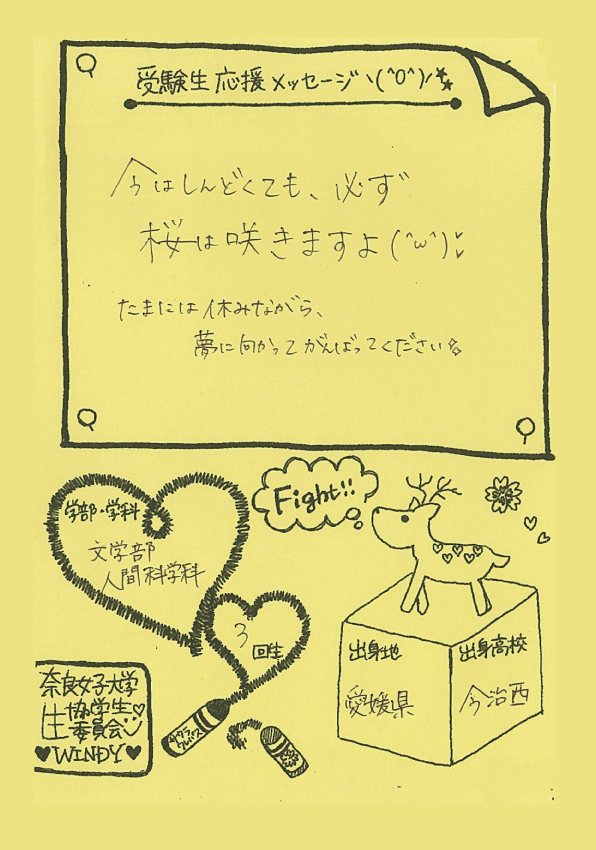 受験生応援メッセージヽ(^O^)ノ
今はしんどくても、必ず
桜は咲きますよ(^ω^)
たまには休みながら、
夢に向かってがんばってください
Fight!!
学部・学科
文学部
人間科学科
3回生
出身地
愛媛県
出身高校
今治西
奈良女子大学
生協学生
委員会
♥WINDY♥
サクラ
クレパス